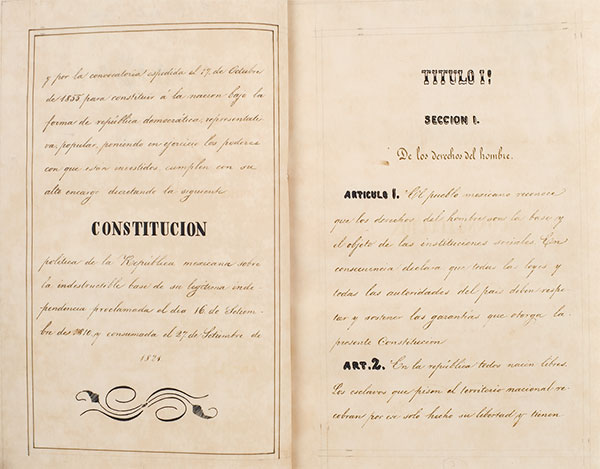 y por la convocatoria espedida el 17 de Octubre
de 1855 para constituir á la nacion bajo la
forma de república democrática, representati
va, popular, poniendo en ejercicio los poderes
con que estan investidos, cumplen con su
alto encargo decretando la siguiente
CONSTITUCION
política de la República mexicana sobre
la indestructible base de su legítima inde
pendencia proclamada el dia 16 de Setiem-
bre de 1810 y consumada el 27 de Setiembre de
1821
TITULO 1º
SECCION 1.
De los derechos del hombre.
ARTICULO 1. El pueblo mexicano reconoce
que los derechos del hombre son la base y
el objeto de las instituciones sociales. En
consecuencia declara que todas las leyes y
todas las autoridades del pais deben respe
tar y sostener las garantías que otorga la
presente Constitucion
ART. 2. En la república todos nacen libres.
Los esclavos que pisen el territorio nacional re
cobran por ese solo hecho su libertad, y tienen